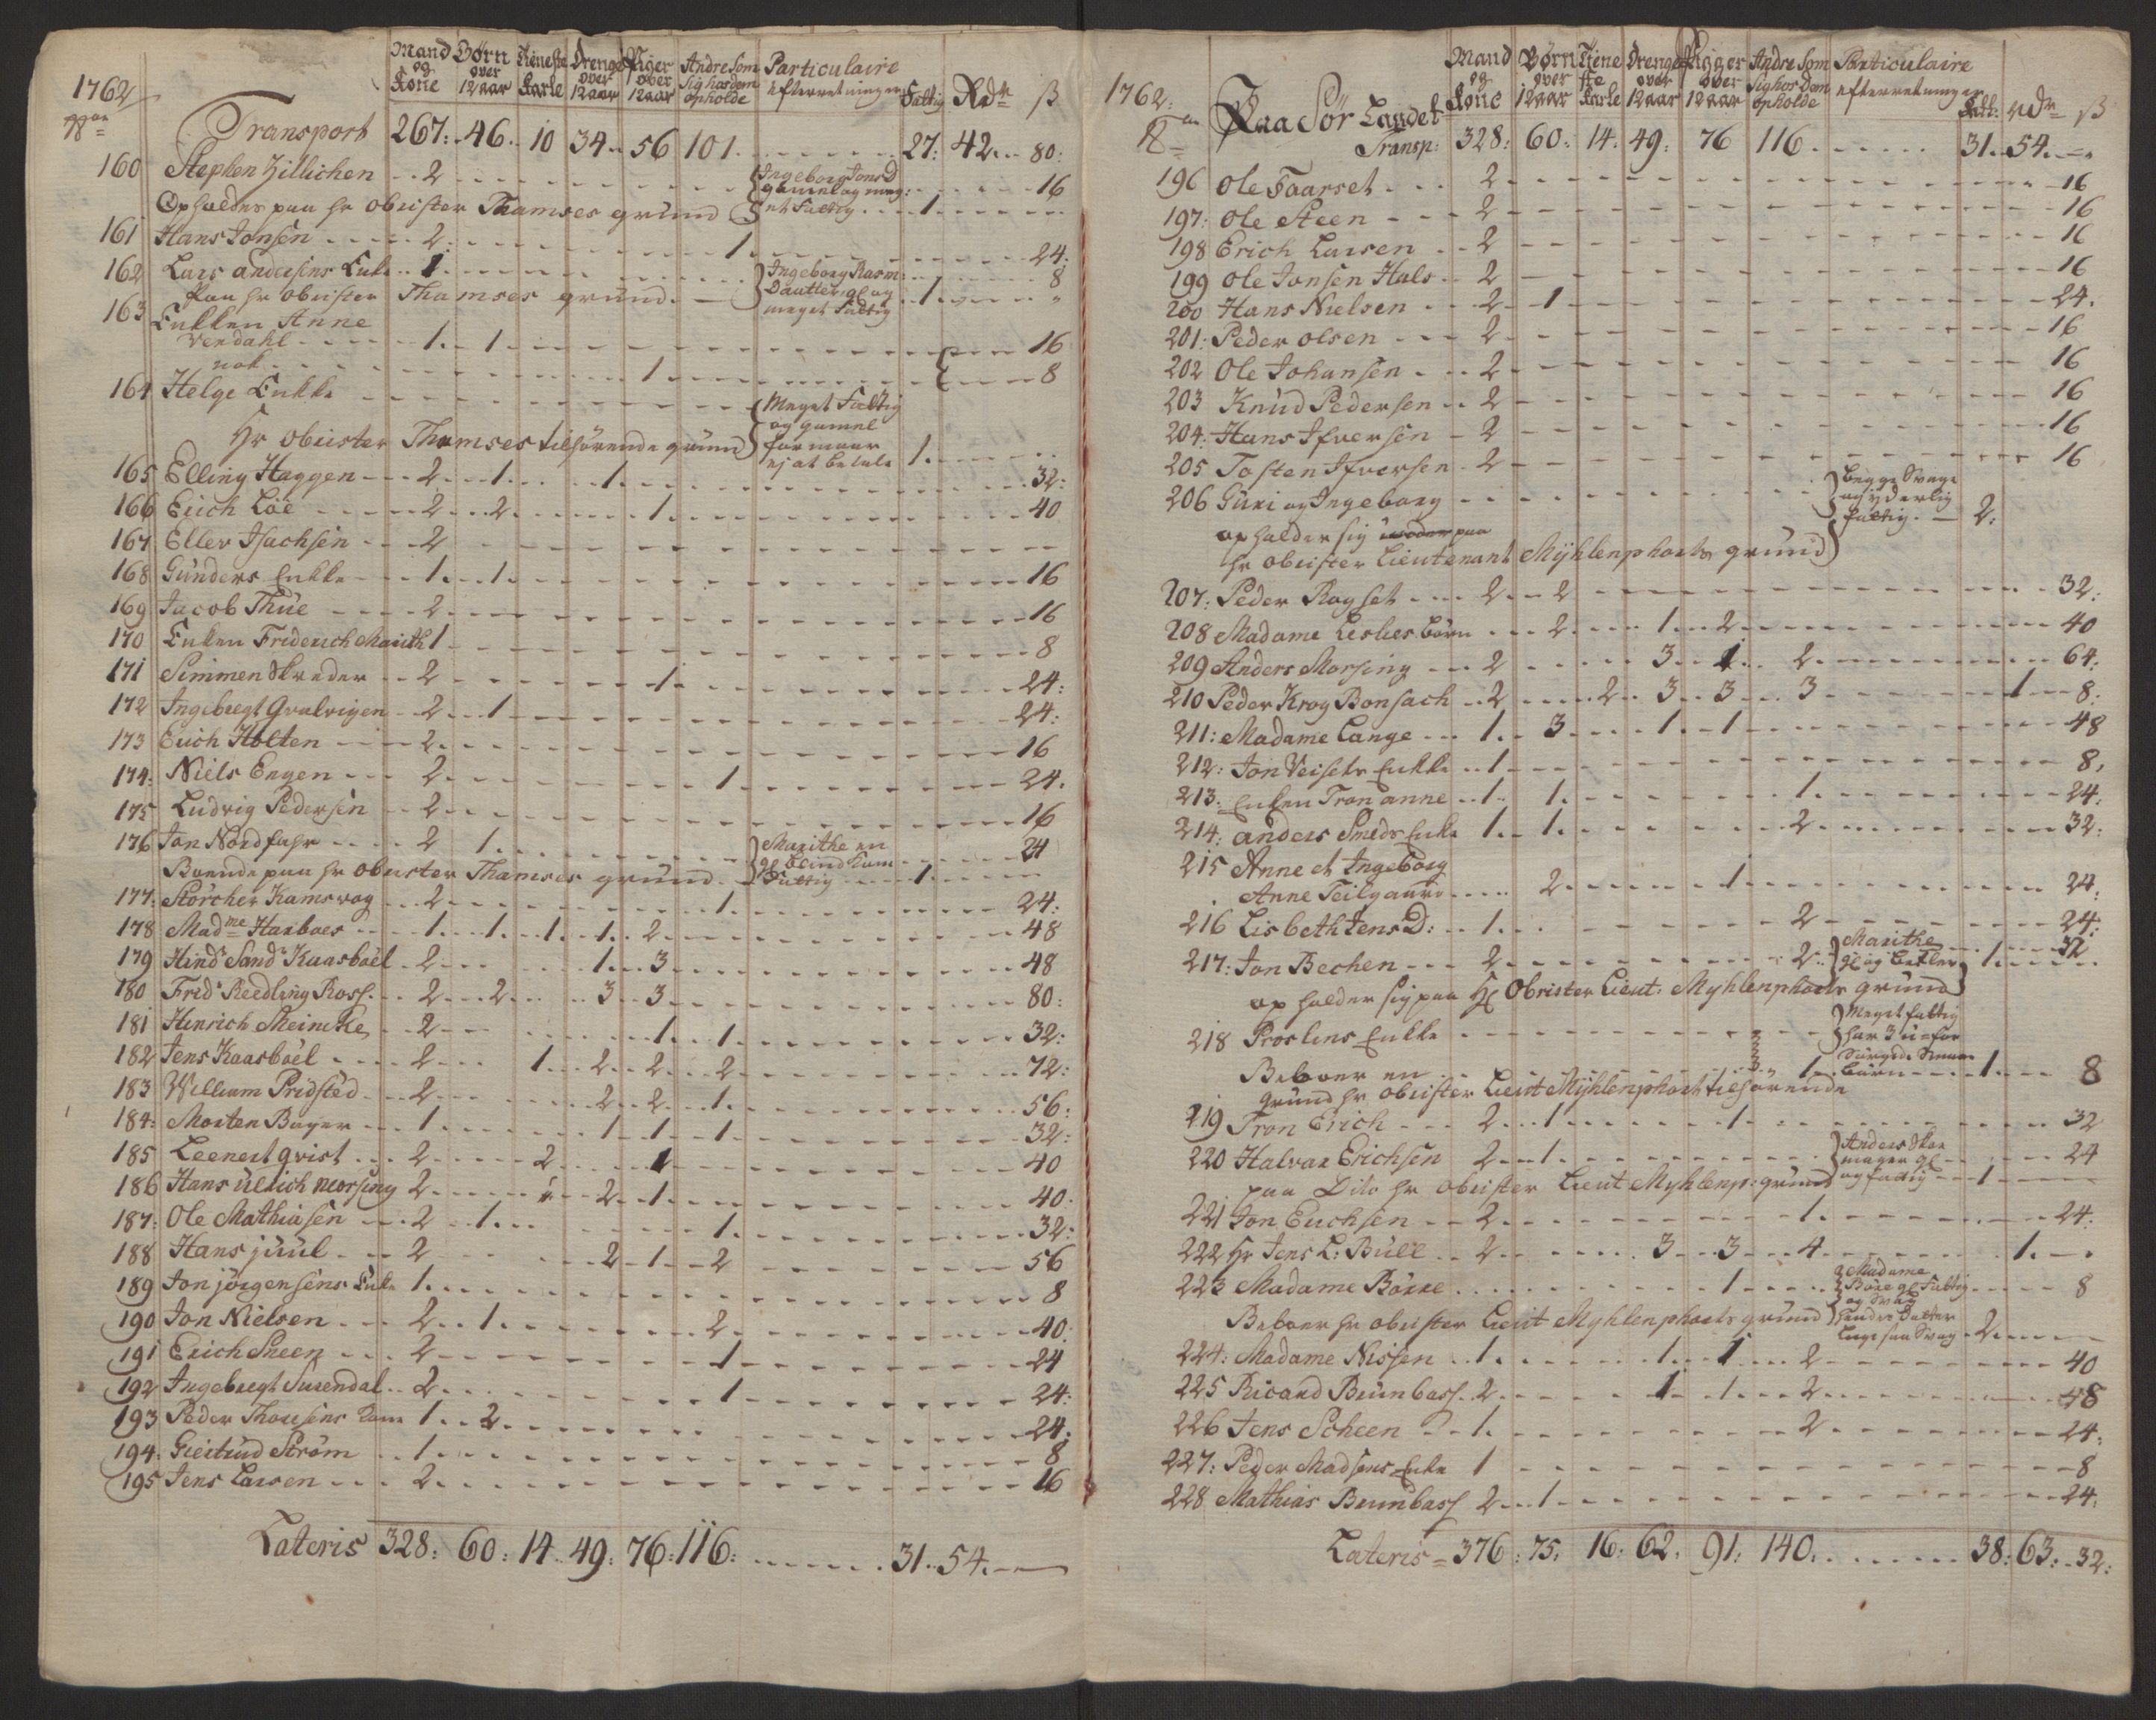 1762
Mand og Kone
Børn over 12 aar
Tieneste Karle
Drenge over 12 aar
Piger over 12 aar
Andre som Sig hos dem opholde
Particulaire efterretninger
Fattig
Rdr
ß
Transport 267: 46. 10 34. 56 101. 27: 42. 80:
160 Stephen Zillichen 2 Ingeborg Jons D 16
gammel og meg:
Opholder paa hr obrister Thamses grund et Fattig 1
161 Hans Jonsen 2. 1. 24.
162 Lars andersens Enke 1 Ingeborg Rasm: 8
Paa hr obrister Thamses grund Daatter, gl og 1
meget Fattig
163 Enkken Anne
Vendahl 1. 1 16
nok 1 8
164 Helge Enkke Meget Fattig
og gamel
Hr obrister Thamses tilhörende grund formaar
ej at betale 1.
165 Elling Haggen 2 1 1 32:
166 Erich Löe 2 2 1 40
167 Eller Isachsen 2
168 Gunders Enkke 1. 1. 16
169 Jacob Thue 2 16
170 Enken Friderich Marith 1 8
171 Simmen Skreder 2 1 24:
172 Ingebregt Qvalvigen 2 1 24:
173 Erich Holten 2 16
174. Niels Engen 2 1 24.
175 Ludvig Pedersen 2 16
176 Jon Nordfuhr 2 1. Marithe en 24
gl blind Kone
Boende paa hr obrister Thamses grund Fattig 1
177. Störcher Kamsvog 2 1. 24:
178 Madme Harboes 1. 1. 1. 1. 2 48
179 Hind Sand Kaasböel 2 1. 3 48
180 Frid Reedling Ross 2 2 3 3 80:
181 Hinrich Meincke 2 1. 1. 32:
182 Jens Kaasböel 2 1. 2 2 2 72:
183 William Pridsted 2 2 2 1. 56:
184: Morten Buger 1 1 1 1 32:
185 Leenert qvist 2 2 1 40
186 Hans ulrich Morsing 2 2 1 40
187: Ole Mathiasen 2 1. 1. 32:
188 Hans juul 2 2 1 2 56
189 Jon jörgensens Enke 1. 8
190 Jon Nielsen 2 1. 2 40:
191 Erich Skeen 2 1 24
192 Ingebregt Surendal 2. 1 24:
193 Peder Thoresens Kone 1. 2 24:
194. Giertrud Ström 1. 8
195 Jens Larsen 2. 16
Lateris 328: 60: 14. 49: 76: 116: 31. 54.
1762:
Mand og Kone
Børn over 12 aar
Tiene ste Karle
Drenge over 12 aar
Pigger over 12 aar
Andre Som Sig hos Dem opholde
Particulaire efterretninger
Fatt:
rdr
ß
Paa Sör Landet
Transp: 328: 60: 14. 49: 76 116 31. 54.
196 Ole Faarset 2 16
197: Ole Steen 2 16
198 Erich Larsen 2 16
199 Ole Jonsen Hals 2 16
200 Hans Nielsen 2 1 24.
201: Peder olsen 2 16
202 Ole Johansen 2 16
203 Knud Pedersen 2 16
204: Hans Ifversen 2 16
205 Tosten Ifversen 2 16
206 Guri og Ingeborg Begge Svage
og yderlig
opholder sig paa fattig. 2:
hr obrister Lieutenant Mÿhlenphorts grund
207: Peder Rogset 2 2 32:
208 Madame Leslies börn 2 1 2 40
209 Anders Morsing 2 3 1 2 64:
210 Peder Krog Bonsach 2 2 3 3 3 1 8:
211: Madame Lange 1. 3 1 1 48
212: Jon Veisets Enkke 1 8,
213. Enken Tron anne 1 1. 1. 24:
214: anders Smeds Enke 1 1. 2 32:
215 Anne et Ingeborg
Anne Teilgaard 2 1 24.
216 Lisbeth Jens D: 1. 2 24:
217: Jon Bechen 2 2 Marithe 32
gl og Betler 1
opholder sig paa Hr Obrister Lieut: Myhlenphorts grund
218 Proslens Enkke Meget fattig
har 3 u=for
sörgede Smaa
Beboer en 1 börn 1. 8
grund hr obrister Lieut Mÿhlenphort tilhörende
219 Tron Erich 2 1 1 32
220 Halvar Erichsen 2 1 Anders Sko 24
mager gl
paa Dito hr obrister Lieut Myhlenp: grund og fattig 1
221 Jon Erichsen 2 1. 24.
222 Hr Jens L: Büll 2 3 3 4 1.
223 Madame Börre 1 Madame 8
Böre gl Fattig
og Svag
Beboer hr obrister Lieut Myhlenphorts grund hendes Datter
lige saa Svag 2
224: Madame Nissen 1. 1. 1 2 40
225 Ricard Brunbass 2 1 1 2 48
226 Jens Scheen 1. 2 24:
227: Peder Madsens Enke 1 8
228 Mathias Brunbass 2 1 24:
Lateris 376: 75. 16: 62. 91: 140. 38: 63: 32: